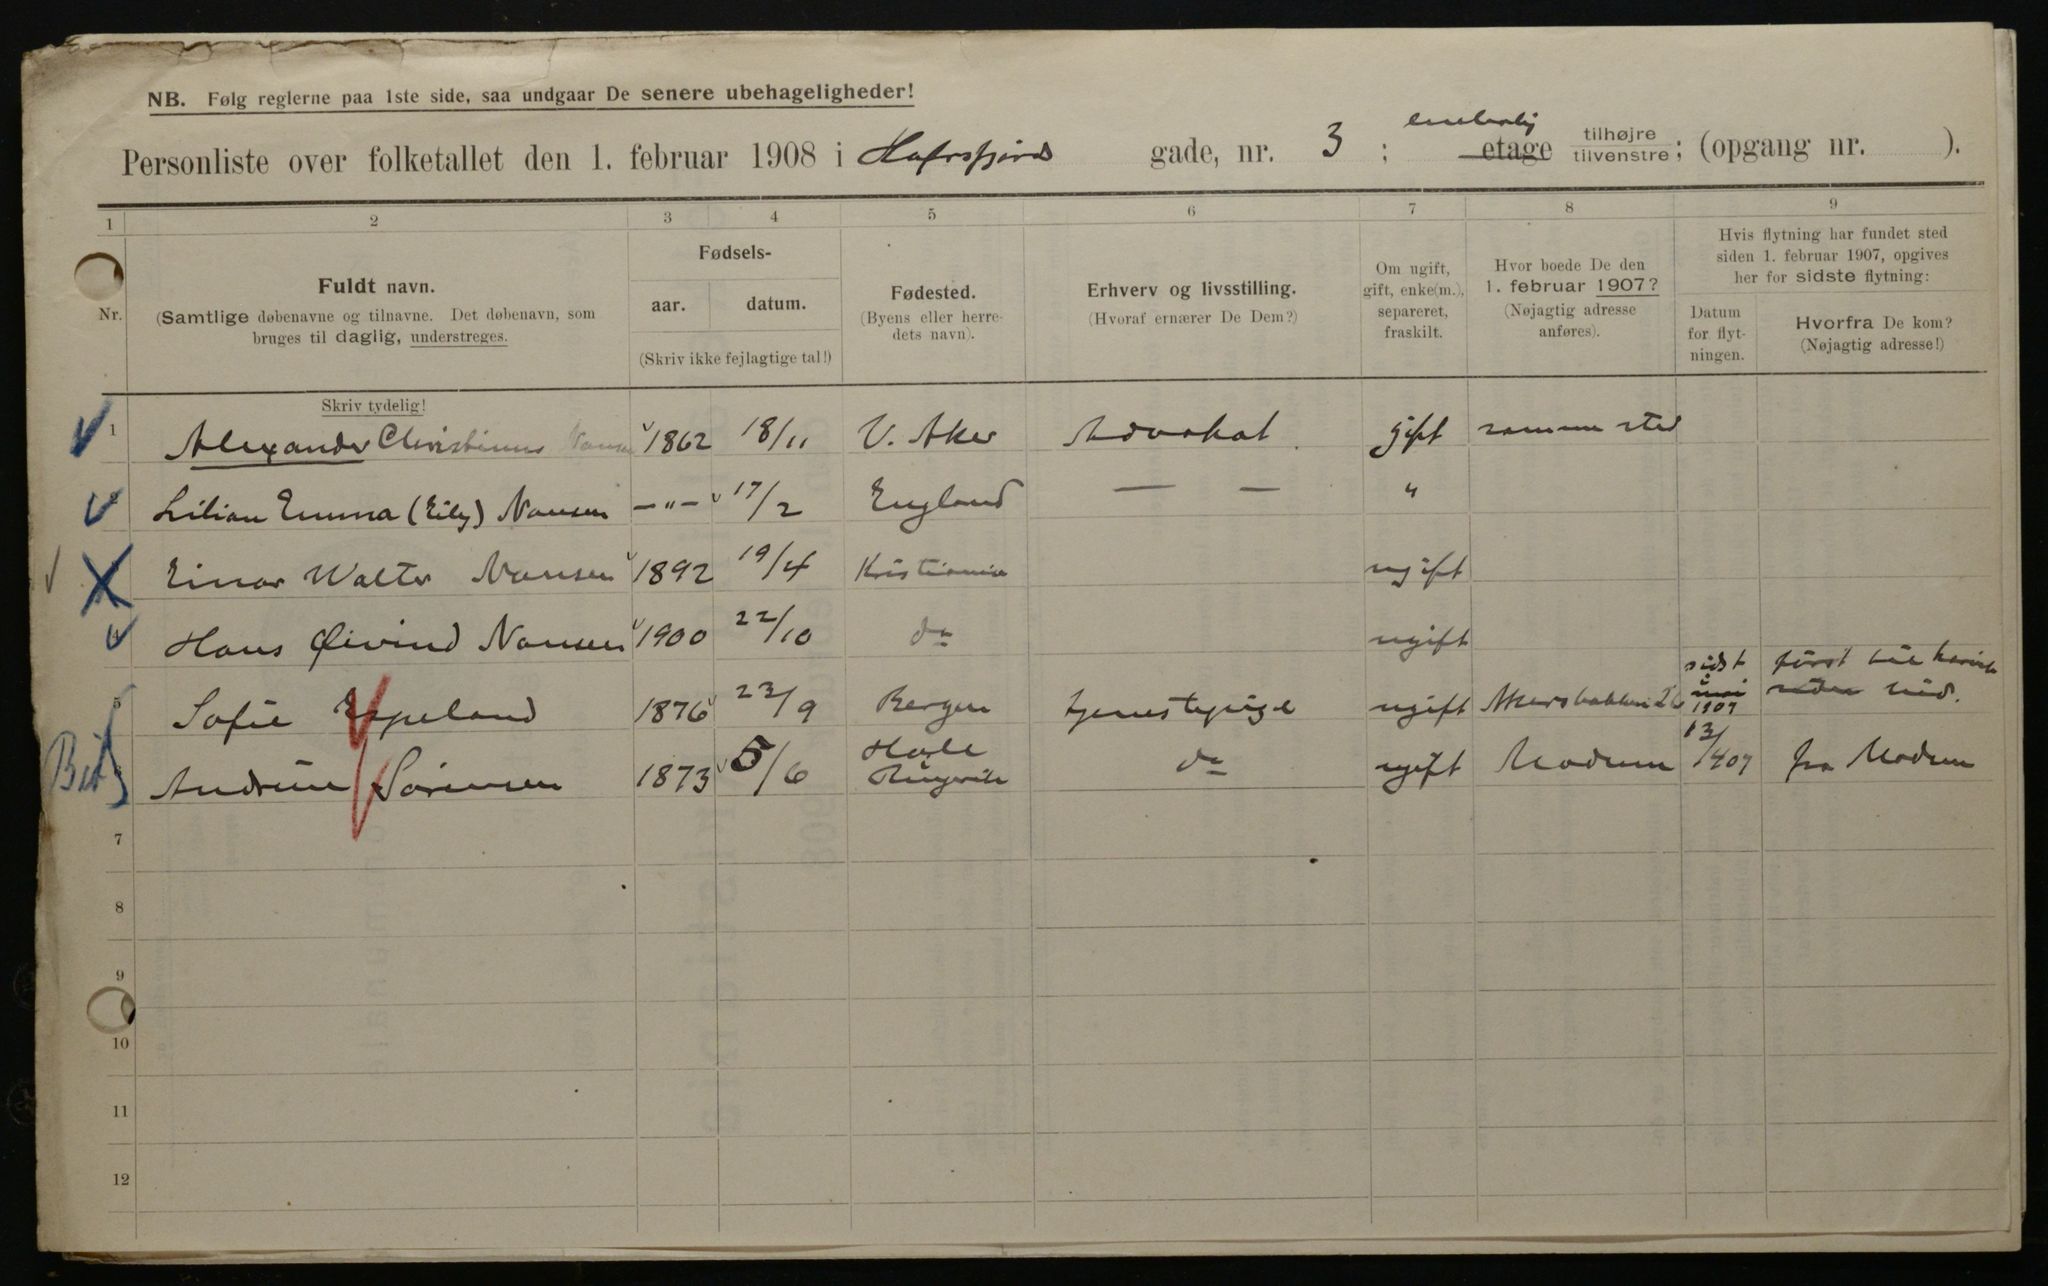 NB. Følg reglerne paa 1ste side, saa undgaar De senere ubehageligheder!
Personliste over folketallet den 1. februar 1908 i Hafrsfjords gade, nr. 3 ; enebolig etage tilhøjre tilvenstre; (opgang nr. ).
1 2 3 4 5 6 7 8 9
Nr.
Fuldt navn.
(Samtlige døbenavne og tilnavne. Det døbenavn, som
bruges til daglig, understreges.
Skriv tydelig!
Fødsels-
aar. datum.
(Skriv ikke fejlagtige tal!)
Fødested.
(Byens eller herre-
dets navn).
Erhverv og livsstilling.
(Hvoraf ernærer De Dem?)
Om ugift,
gift, enke(m.),
separeret,
fraskilt.
Hvor boede De den
1. februar 1907?
(Nøjagtig adresse
anføres).
Hvis flytning har fundet sted
siden 1. februar 1907, opgives
her for sidste flytning:
Datum
for flyt-
ningen.
Hvorfra De kom?
(Nøjagtig adresse!)
1 Alexander Christinus Nansen 1862 18/11 V. Aker Advokat gift samme sted
2 Lilian Emma (Eily) Nansen —"— 17/2 England — — "
Einar Walter Nansen 1892 19/4 Kristiania ugift
4 Hans Øivind Nansen 1900 22/10 do ugift
5 Sofie Espeland 1876 23/9 Bergen tjenestepige ugift Akersbakken 26 sidst i 1907 først
Andrine Sørensen 1873 5/6 Hole Ringerike do ugift Modum 13/1 407 fra Modum
7
8
9
10
11
12